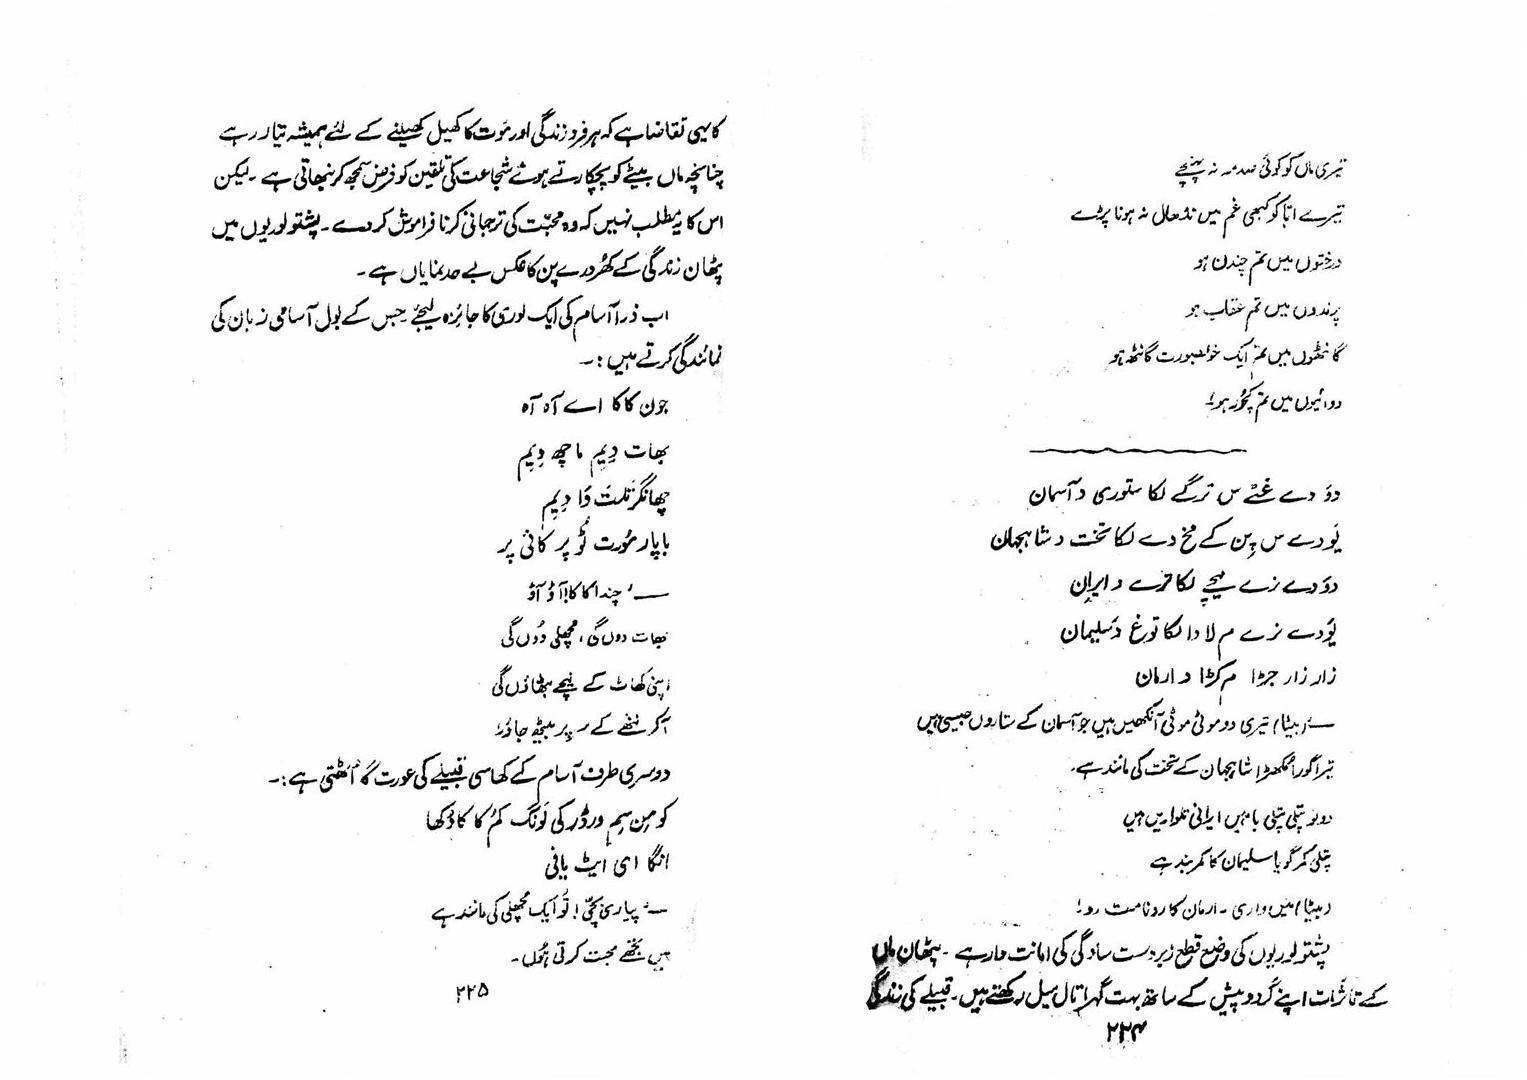 تیری ماں کو کوئی صدمہ نہ پہنچے
تیرے ابّا کو کبھی غم میں نڈھال نہ ہونا پڑے
درختوں میں تم چندن ہو
پرندوں میں تم عقاب ہو
گانٹھوں میں تم ایک خوبصورت گانٹھ ہو
دوائیوں میں تم کچُور ہو!
دوَ دے غٹے س ترگے لکا ستوری د آسمان
یَو دے س پِن کے مخ دے لکا تخت د شاہجہان
دوَ دے نرے لیچے لکا تُرے د ایران
یَو دے نرے م لا دا لکا توغ دَ سلیمان
زار زار جڑا م کڑا د ارمان
— ’(بیٹا) تیری دو موٹی موٹی آنکھیں ہیں جو آسمان کے ستاروں جیسی ہیں
تیرا گورا مکھڑا شاہجہان کے تخت کی مانند ہے۔
دونو پتلی پتلی باہیں ایرانی تلواریں ہیں
پتلی کمر گویا سلیمان کا کمربند ہے
(بیٹا) میں واری ۔ ارمان کا رونا مت رو!
پشتو لوریوں کی وضع قطع زبردست سادگی کی امانت دار ہے ۔ پٹھان ماں
کے تاثّرات اپنے گردوپیش کے ساتھ بہت گہرا تال میل رکھتے ہیں۔ قبیلے کی زندگی
۲۲۴
کا یہی تقاضا ہے کہ ہر فرد زندگی اور مَوت کا کھیل کھیلنے کے لئے ہمیشہ تیار رہے
چنانچہ ماں بیٹے کو پچکارتے ہوئے شجاعت کی تلقین کو فرض سمجھ کر نبھاتی ہے ۔ لیکن
اس کا یہ مطلب نہیں کہ وہ محبّت کی ترجمانی کرنا فراموش کر دے ۔ پشتو لوریوں میں
پٹھان زندگی کے کھُردرے پن کا عکس بے حد نمایاں ہے ۔
اب ذرا آسام کی ایک لوری کا جائزہ لیجئے جس کے بول آسامی زبان کی
نمائندگی کرتے ہیں : ۔
جون کاکا اے آہ آہ
بھات دِیم ماچھ دِیم
چھانگر تلَت دَا دِیم
باپار مُورت ٹُو پر کانی پر
— ’چندا کاکا! آؤ آؤ
بھات دوں گی ، مچھلی دُوں گی
اپنی کھاٹ کے نیچے بٹھاؤں گی
آ کر ننھے کے سر پر بیٹھ جاؤ!
دوسری طرف آسام کے کھاسی قبیلے کی عورت گا اُٹھتی ہے :۔
کو مِن ہِم ورڈر کی لَونگ کمُ کا کا دُکھا
انگا ای ایٹ یافی
— ’پیاری بچّی! تُو ایک مچھلی کی مانند ہے
میں تجھے محبت کرتی ہُوں ۔
۲۲۵